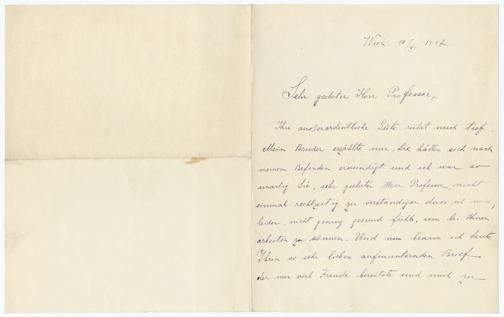 Wien 10/VI 1917
Sehr geehrter Herr Professor,
Ihre außerordentliche Güte rührt mich tief.
Mein Bruder erzählte mir, Sie hätten sich nach
meinem Befinden erkundigt und ich war so
unartig Sie, sehr geehrter Herr Professor, nicht
einmal rechtzeitig zu verständigen dass ich mich,
leider, nicht genug gesund fühle, um bei Ihnen
arbeiten zu können. Und nun bekam ich heute
Ihren so sehr lieben aufmunternden Brief
der mir viel Freude bereitete und mich zu